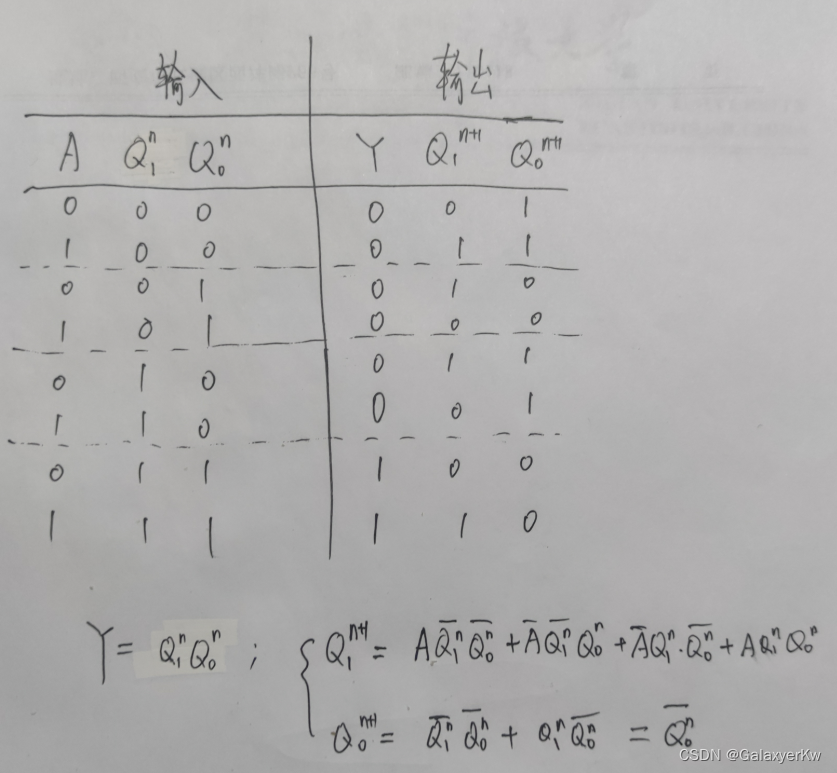 输入 输出
A Q₁ⁿ Q₀ⁿ Y Q₁ⁿ⁺¹ Q₀ⁿ⁺¹
0 0 0 0 0 1
1 0 0 0 1 1
0 0 1 0 1 0
1 0 1 0 0 0
0 1 0 0 1 1
1 1 0 0 0 1
0 1 1 1 0 0
1 1 1 1 1 0
Y = Q₁ⁿQ₀ⁿ ; { Q₁ⁿ⁺¹ = A Q̅₁ⁿ Q̅₀ⁿ + A̅ Q̅₁ⁿ Q₀ⁿ + A̅ Q₁ⁿ · Q̅₀ⁿ + A Q₁ⁿ Q₀ⁿ
Q₀ⁿ⁺¹ = Q̅₁ⁿ Q̅₀ⁿ + Q₁ⁿ Q̅₀ⁿ = Q̅₀ⁿ
CSDN @GalaxyerKw